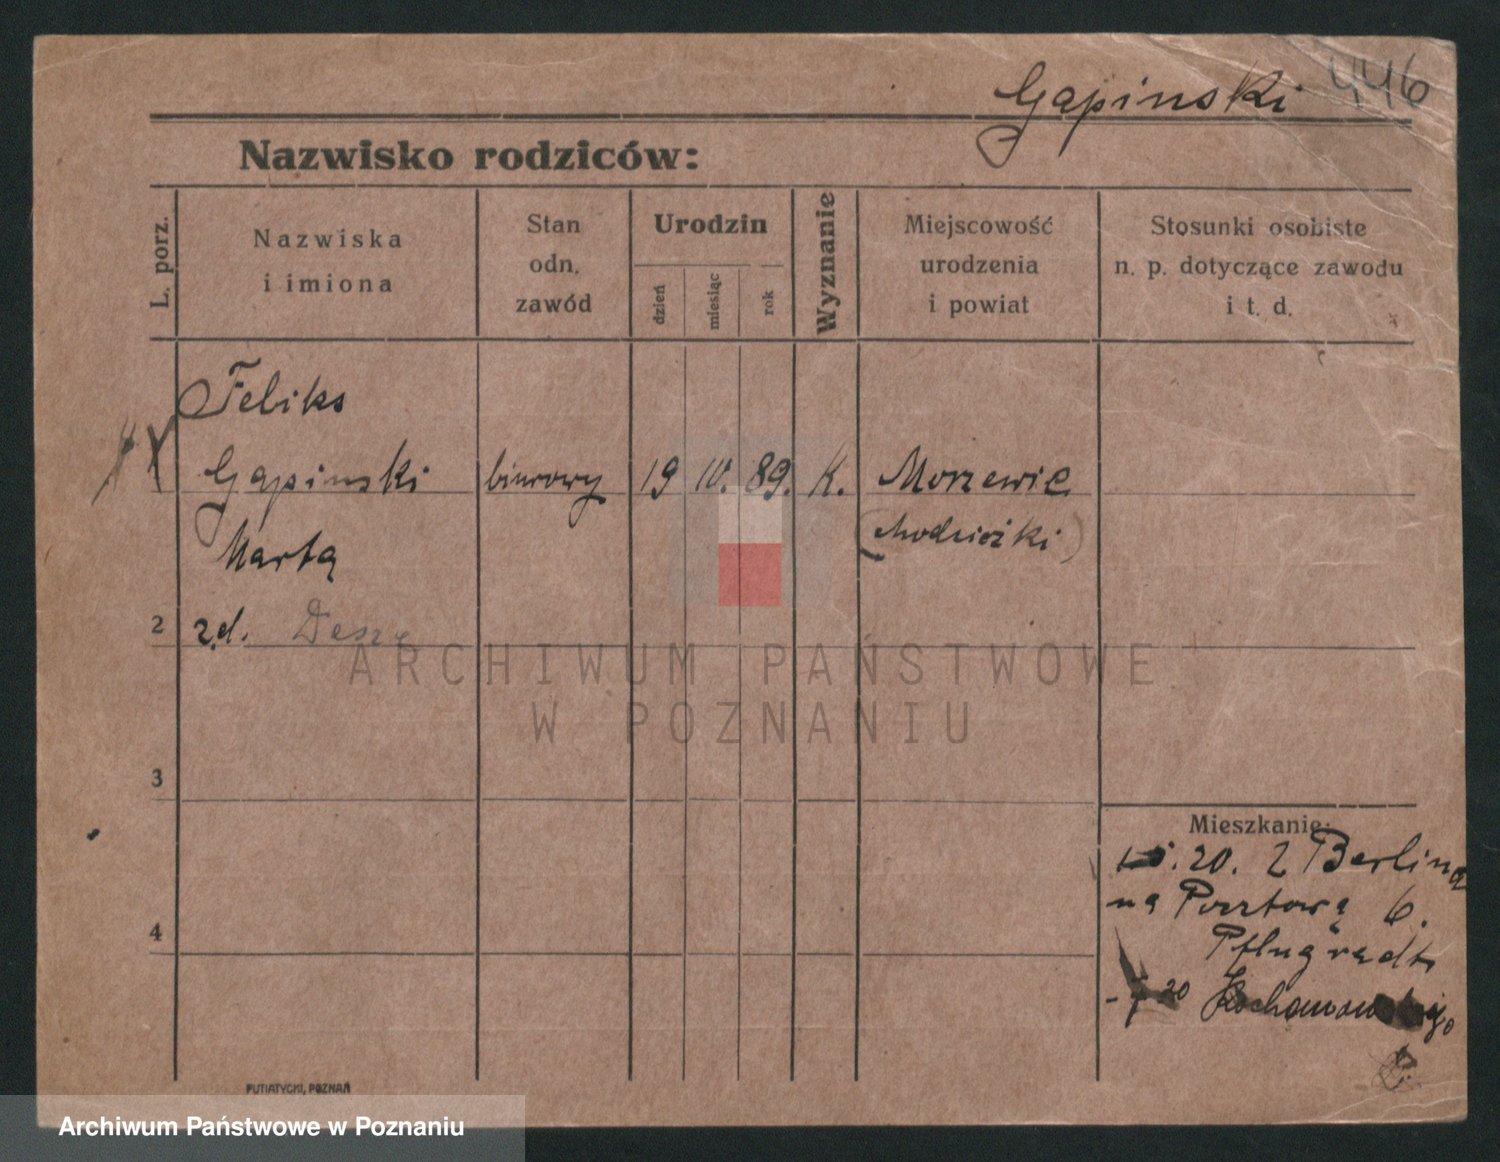 Gąpinski 446
Nazwisko rodziców:
L. porz.
Nazwiska
i imiona
Stan
odn.
zawód
Urodzin
dzień
miesiąc
rok
Wyznanie
Miejscowość
urodzenia
i powiat
Stosunki osobiste
n. p. dotyczące zawodu
i t. d.
Feliks
Gąpinski biurowy 19 10. 89. K. Morzewie
(chodzieżki)
Marta
2 z d.
3
4
Mieszkanie:
20. z Berlina
na Pocztową 6.
20 Kochanowskiego
PUTIATYCKI, POZNAŃ
ARCHIWUM PAŃSTWOWE
W POZNANIU
Archiwum Państwowe w Poznaniu